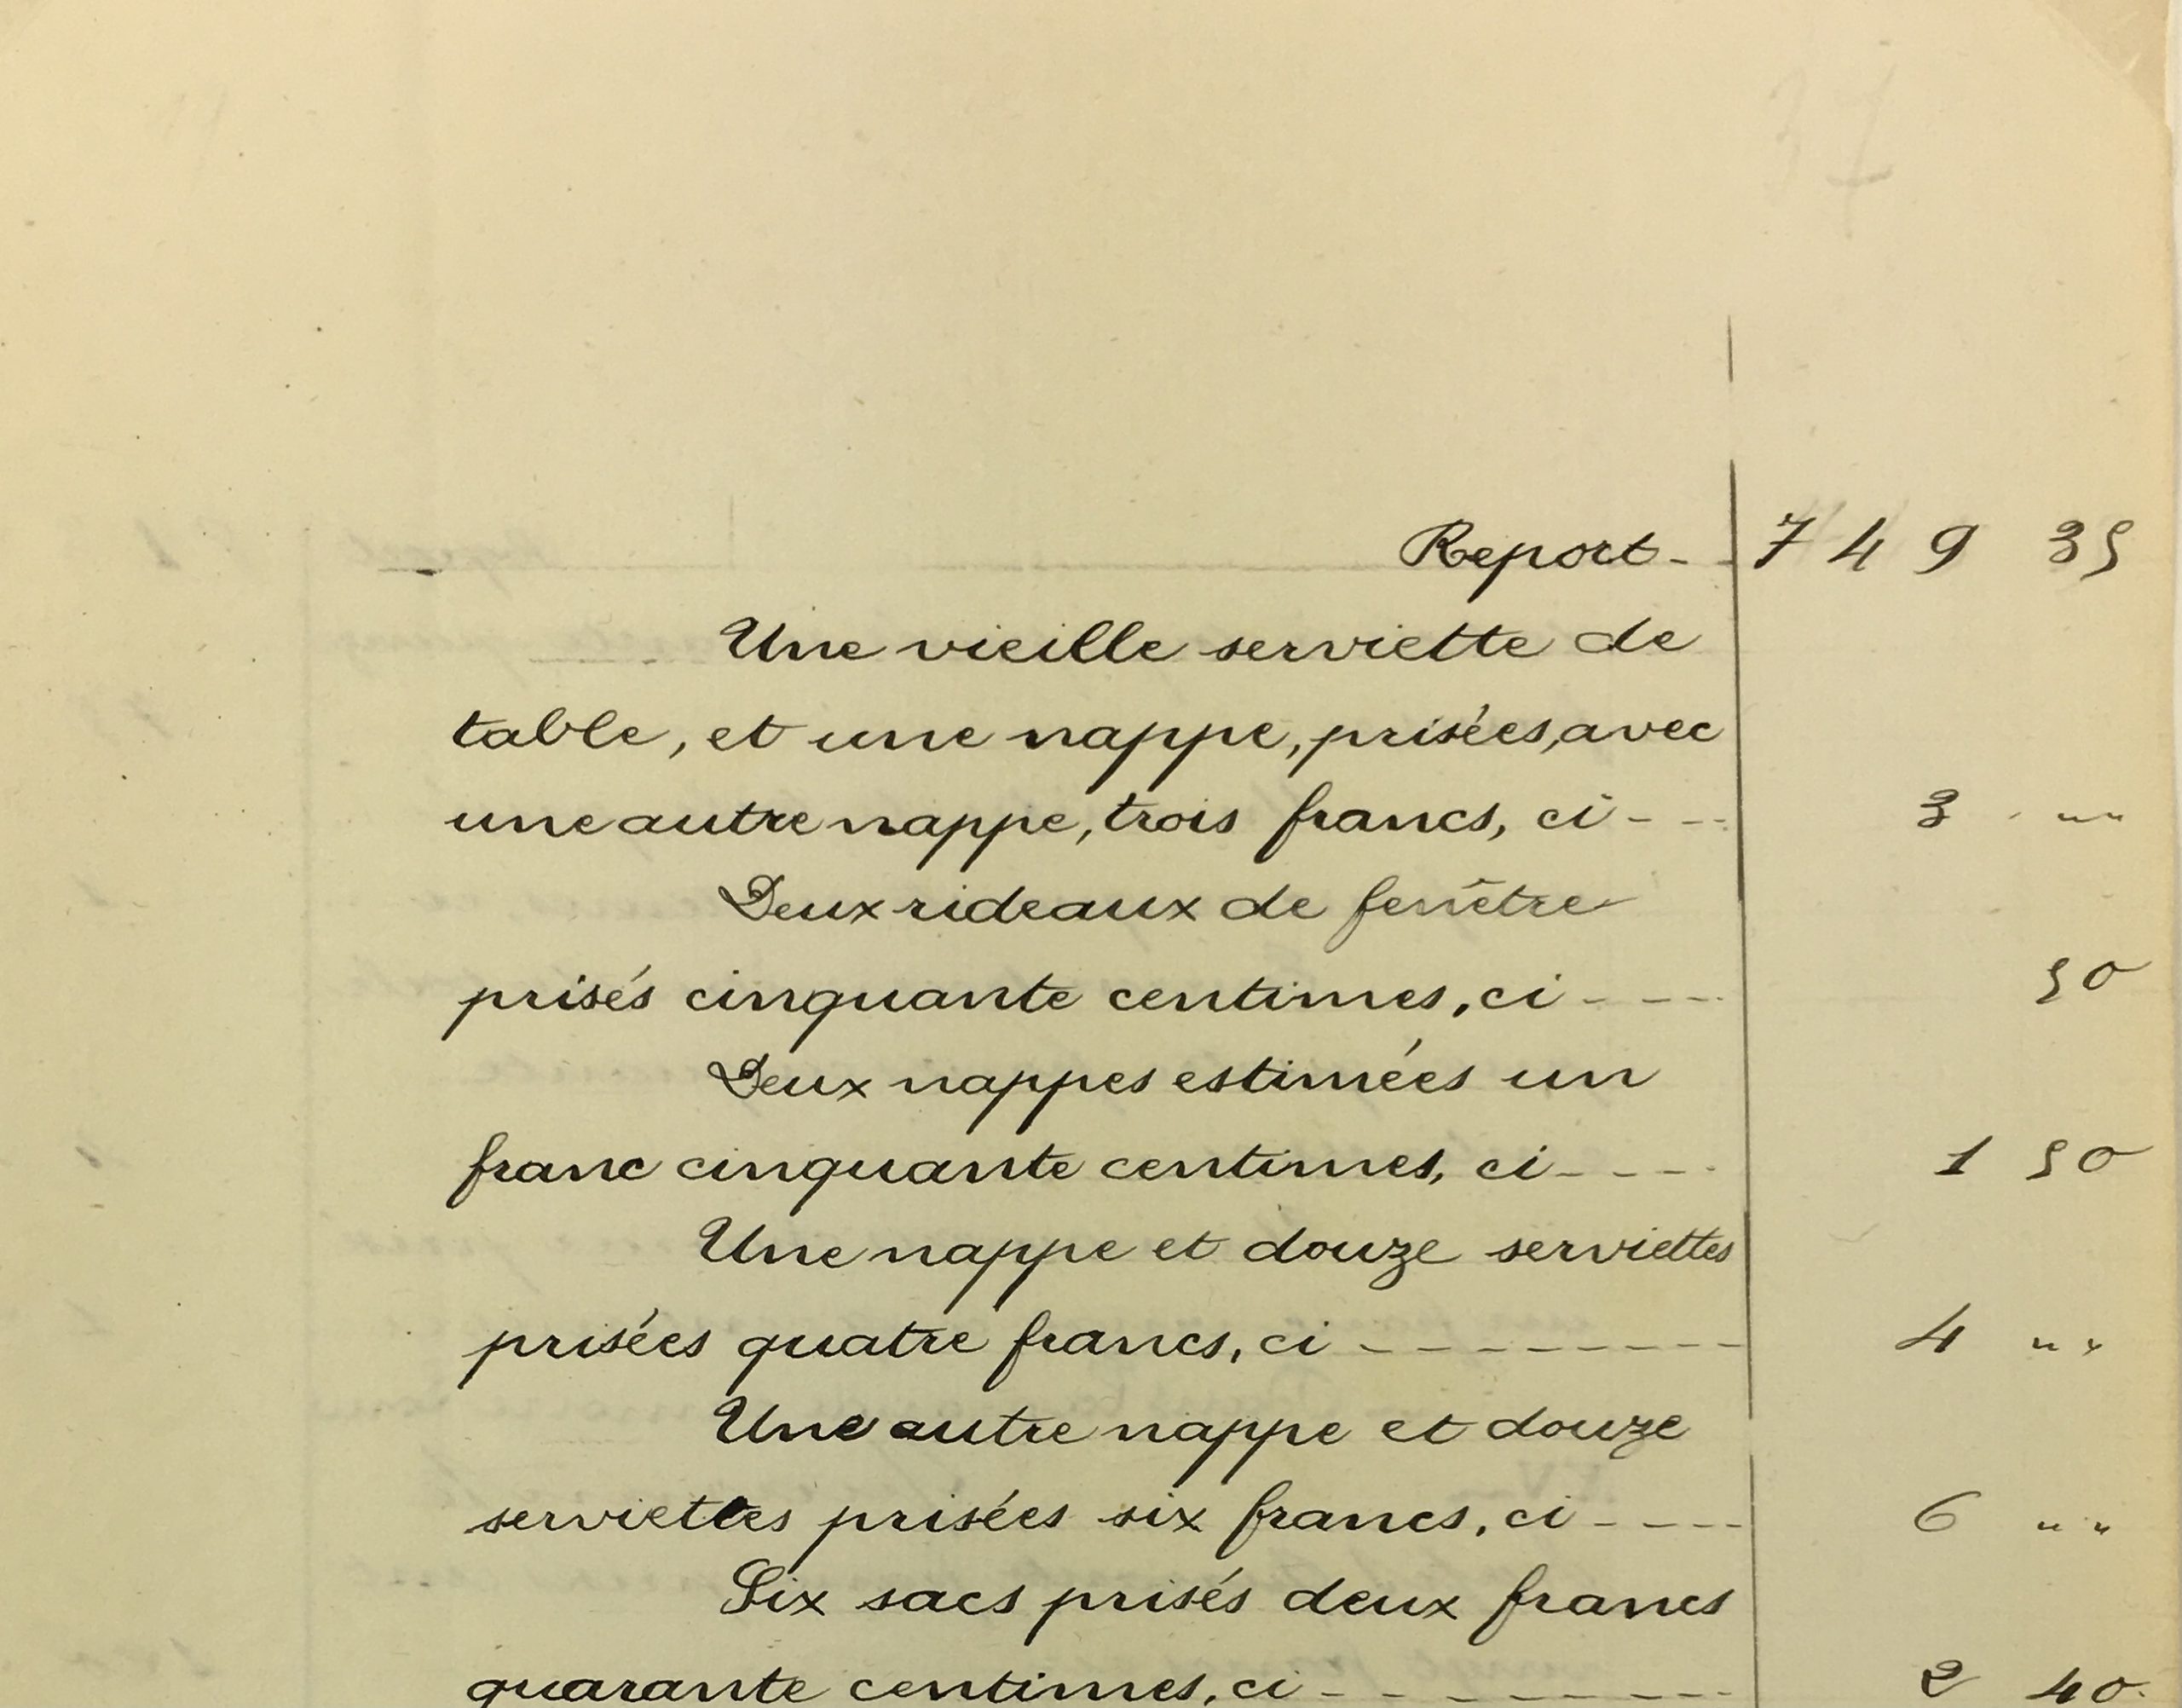 37
Report - - 749 35
Une vieille serviette de
table, et une nappe, prisées, avec
une autre nappe, trois francs, ci - - - 3 " "
Deux rideaux de fenêtre
prisés cinquante centimes, ci - - - - 50
Deux nappes estimées un
franc cinquante centimes, ci - - - - 1 50
Une nappe et douze serviettes
prisées quatre francs, ci - - - - - - - - - 4 " "
Une autre nappe et douze
serviettes prisées six francs, ci - - - - 6 " "
Six sacs prisés deux francs
quarante centimes, ci - - - - - - - - - 2 40